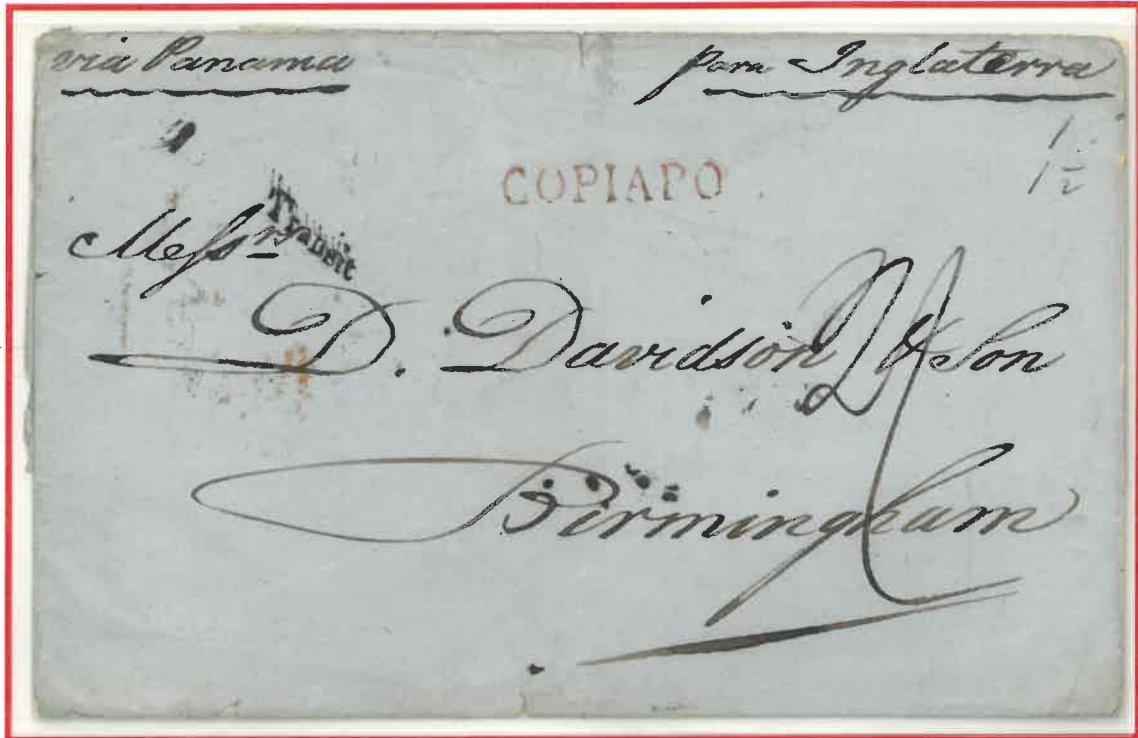 via Panama
para Inglaterra
1
1½
COPIAPO
Transit
Messrs
D. Davidson & Son
Birmingham